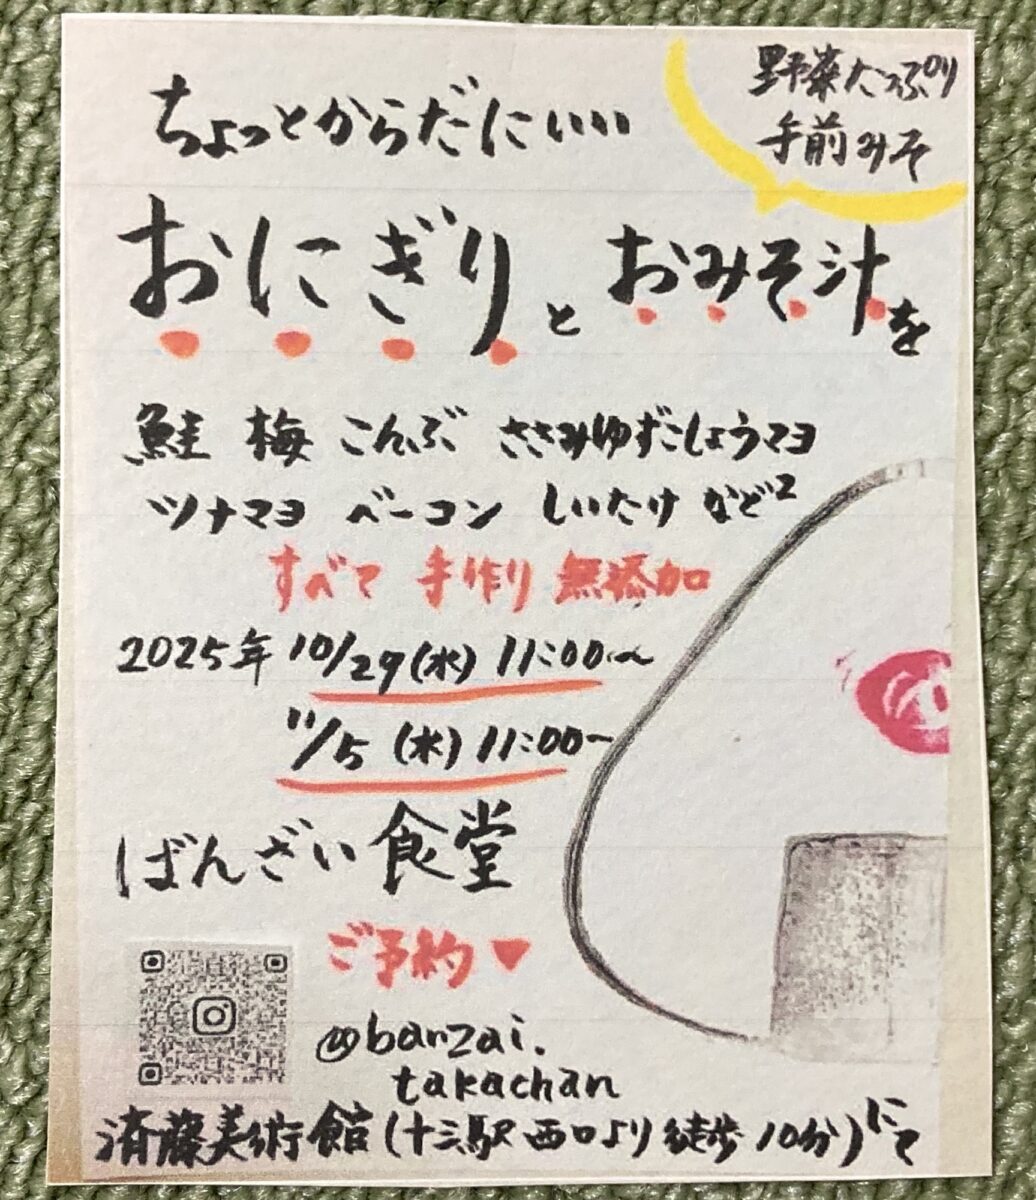 野菜たっぷり
手前みそ
ちょっとからだにいい
おにぎりとおみそ汁を
鮭 梅 こんぶ ささみゆずこしょうマヨ
ツナマヨ ベーコン しいたけ など2
すべて 手作り 無添加
2025年 10/29(水) 11:00〜
11/5(水) 11:00〜
ばんざい食堂
ご予約♥
@banzai.
takachan
済藤美術館(十三駅西口より徒歩10分)にて